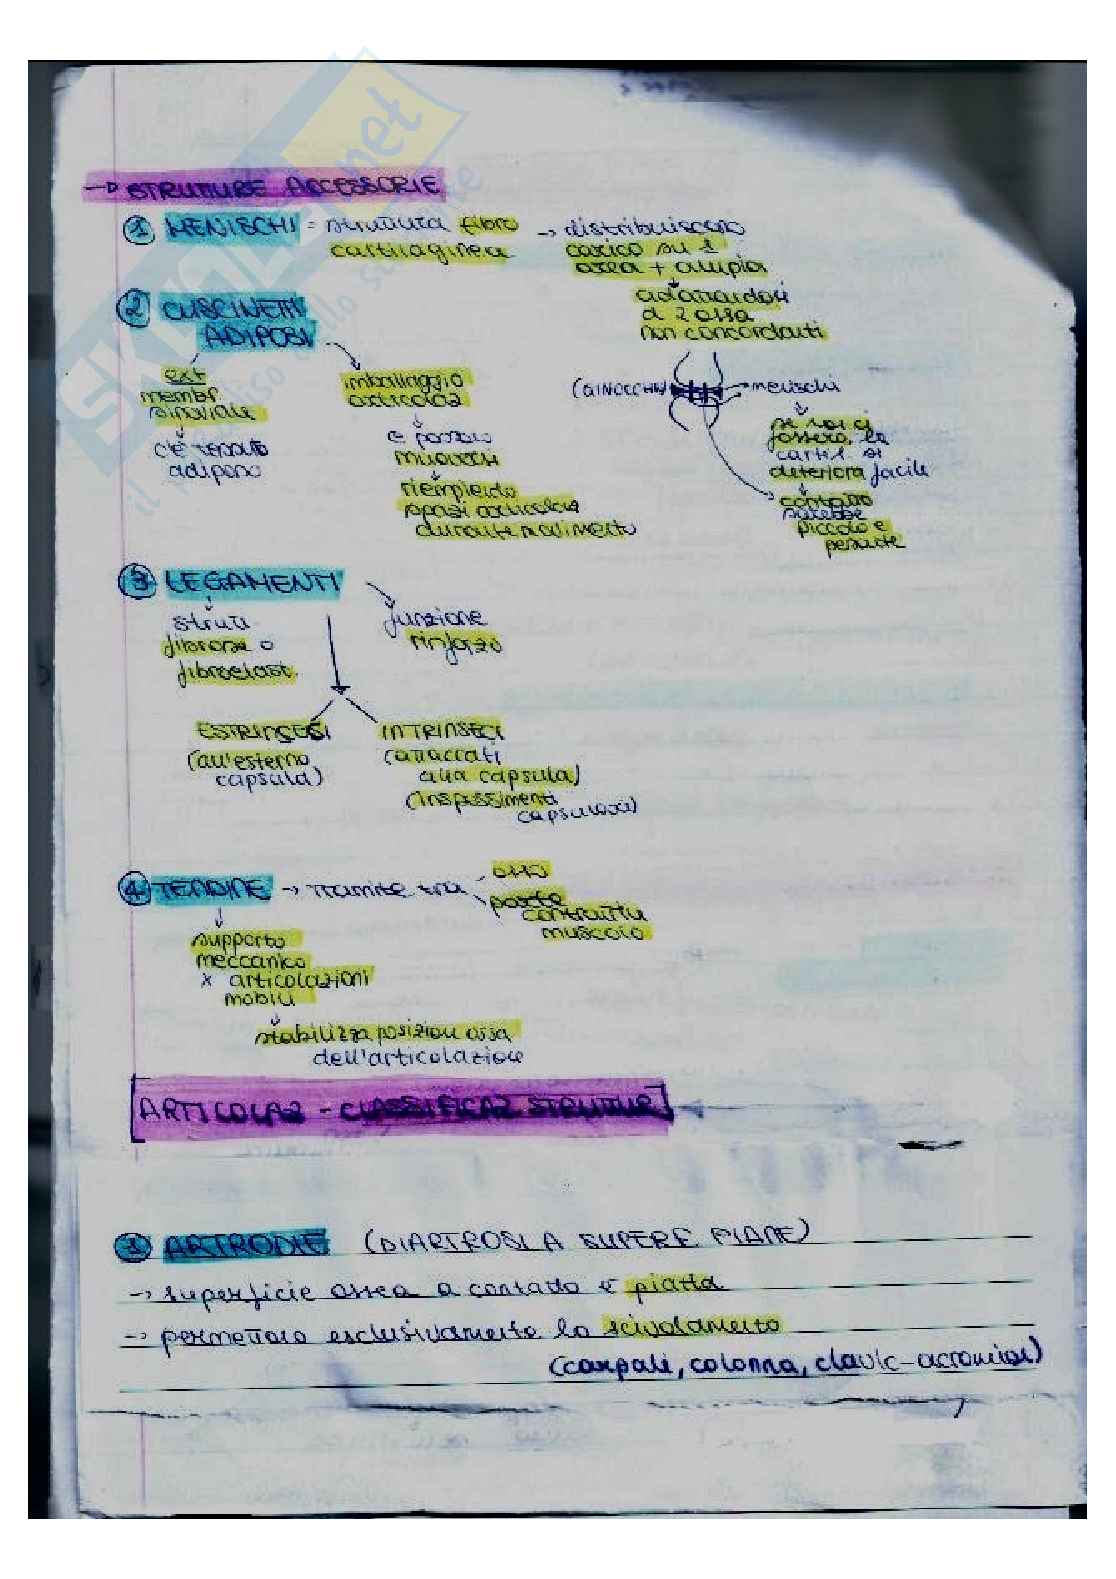 → STRUTTURE ACCESSORIE
① MENISCHI = struttura fibro
cartilaginea
→ distribuiscono
carico su 1
area + ampia
adattandosi
a 2 ossa
non concordanti
(GINOCCHIO)
→ menischi
se non ci
fossero, la
cartil si
deteriora facile
contatto
sarebbe
piccolo e
pesante
② CUSCINETTI
ADIPOSI
ext
membr
sinoviale
c'è tessuto
adiposo
imballaggio
articolaz
e possono
muoversi
riempiendo
spazi articolari
durante movimento
③ LEGAMENTI
strutt
fibrose o
fibroelast.
funzione
rinforzo
ESTRINSECI
(all'esterno
capsula)
INTRINSECI
(attaccati
alla capsula)
(inspessimenti
capsulari)
④ TENDINE → tramite tra
osso
parte
contrattile
muscolo
supporto
meccanico
x articolazioni
mobili
stabilizza posizioni ossa
dell'articolazione
ARTICOLAZ - CLASSIFICAZ STRUTTUR
① ARTRODIE (DIARTROSI A SUPERF. PIANE)
→ superficie ossea a contatto è piatta
→ permettono esclusivamente lo scivolamento
(carpali, colonna, clavic-acromion)
SKUOLA.net
il paradiso dello studente